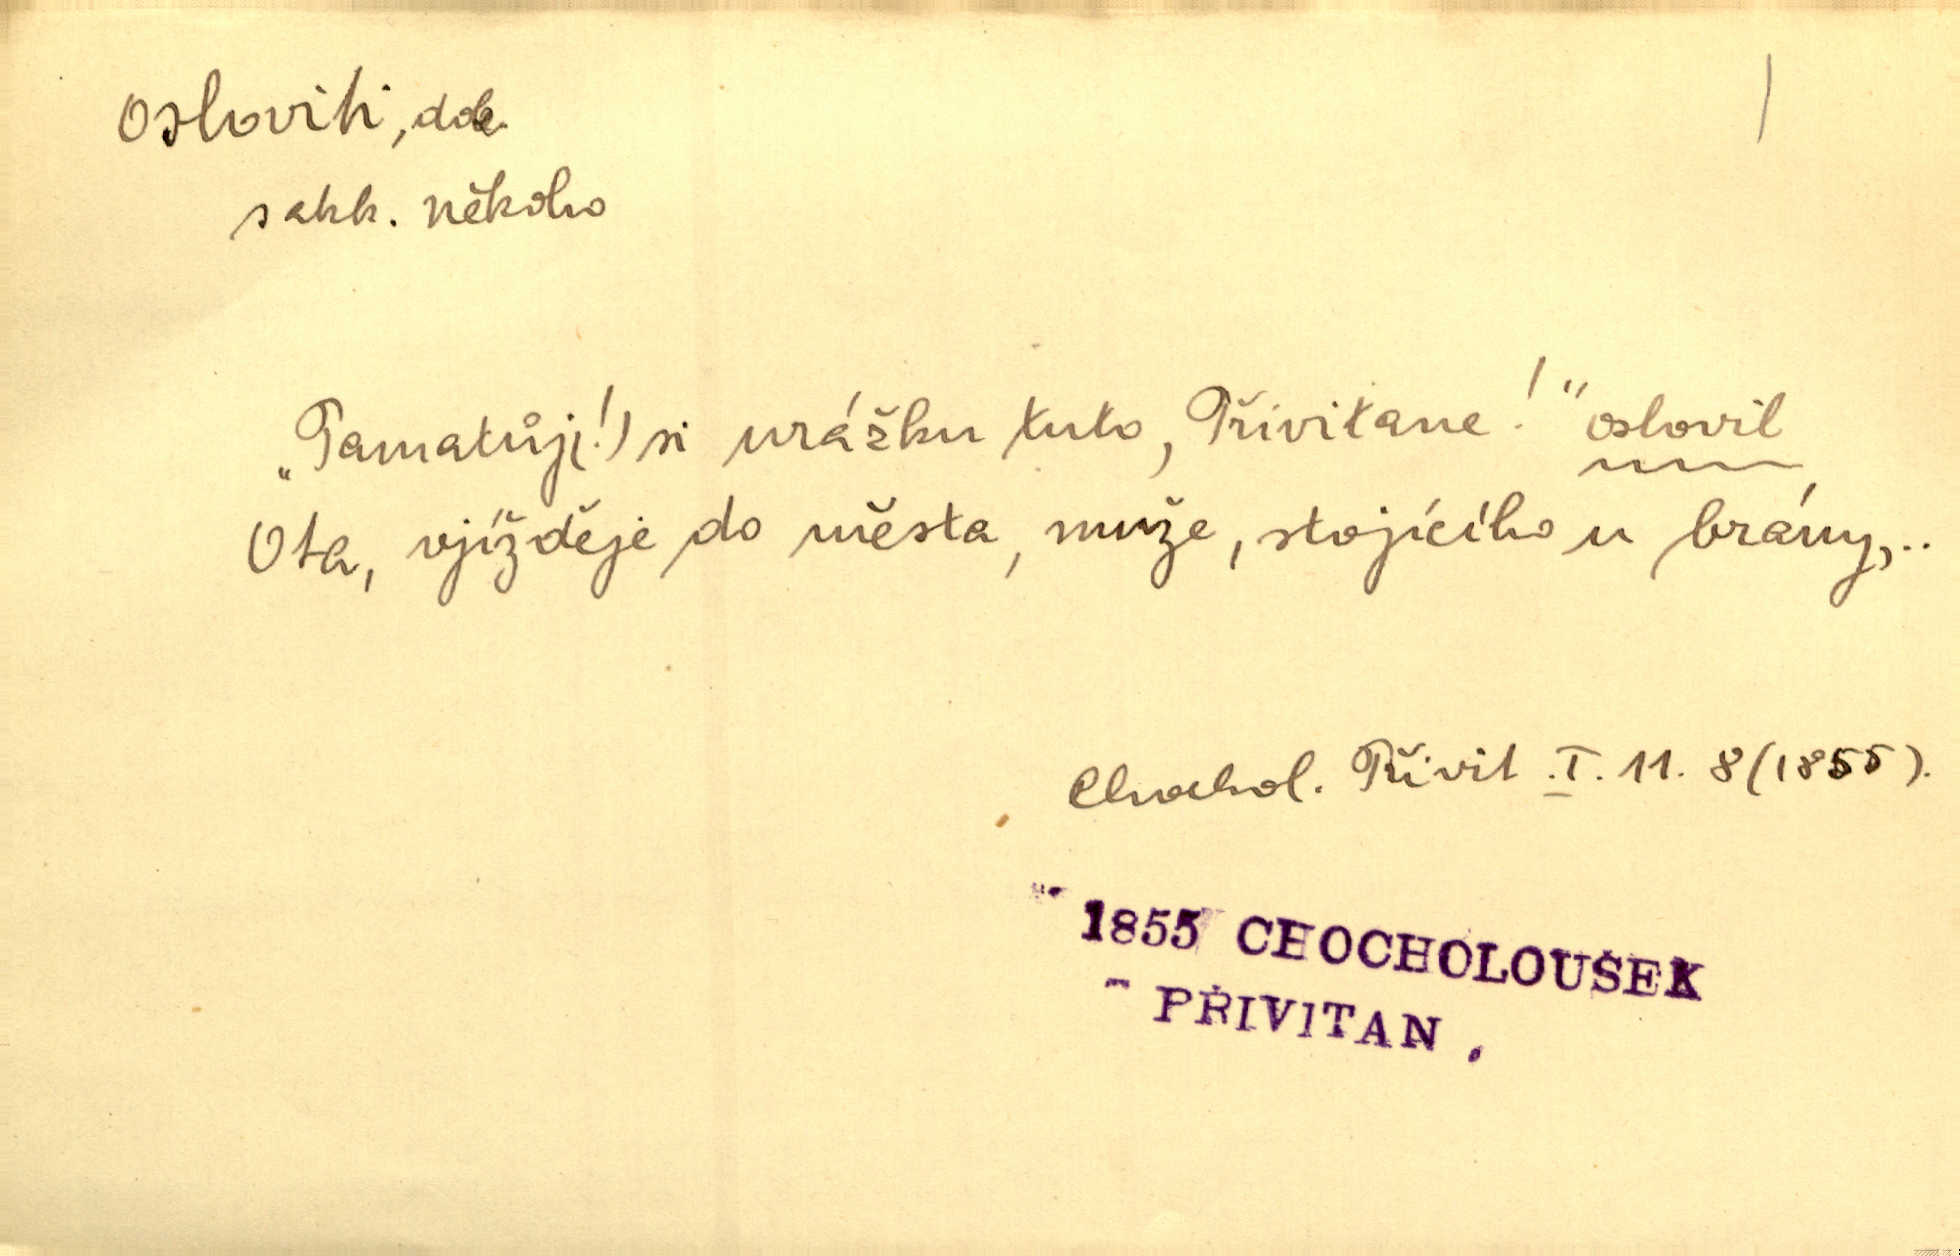 osloviti, dok.
s akk. někoho
„Pamatůj(!) si urážku tuto, Přivitane!" oslovil
Ota, vjížděje do města, muže, stojícího u brány,..
Chochol. Přivit .I. 11. 8 (1855).
1855 CHOCHOLOUŠEK
PŘIVITAN.